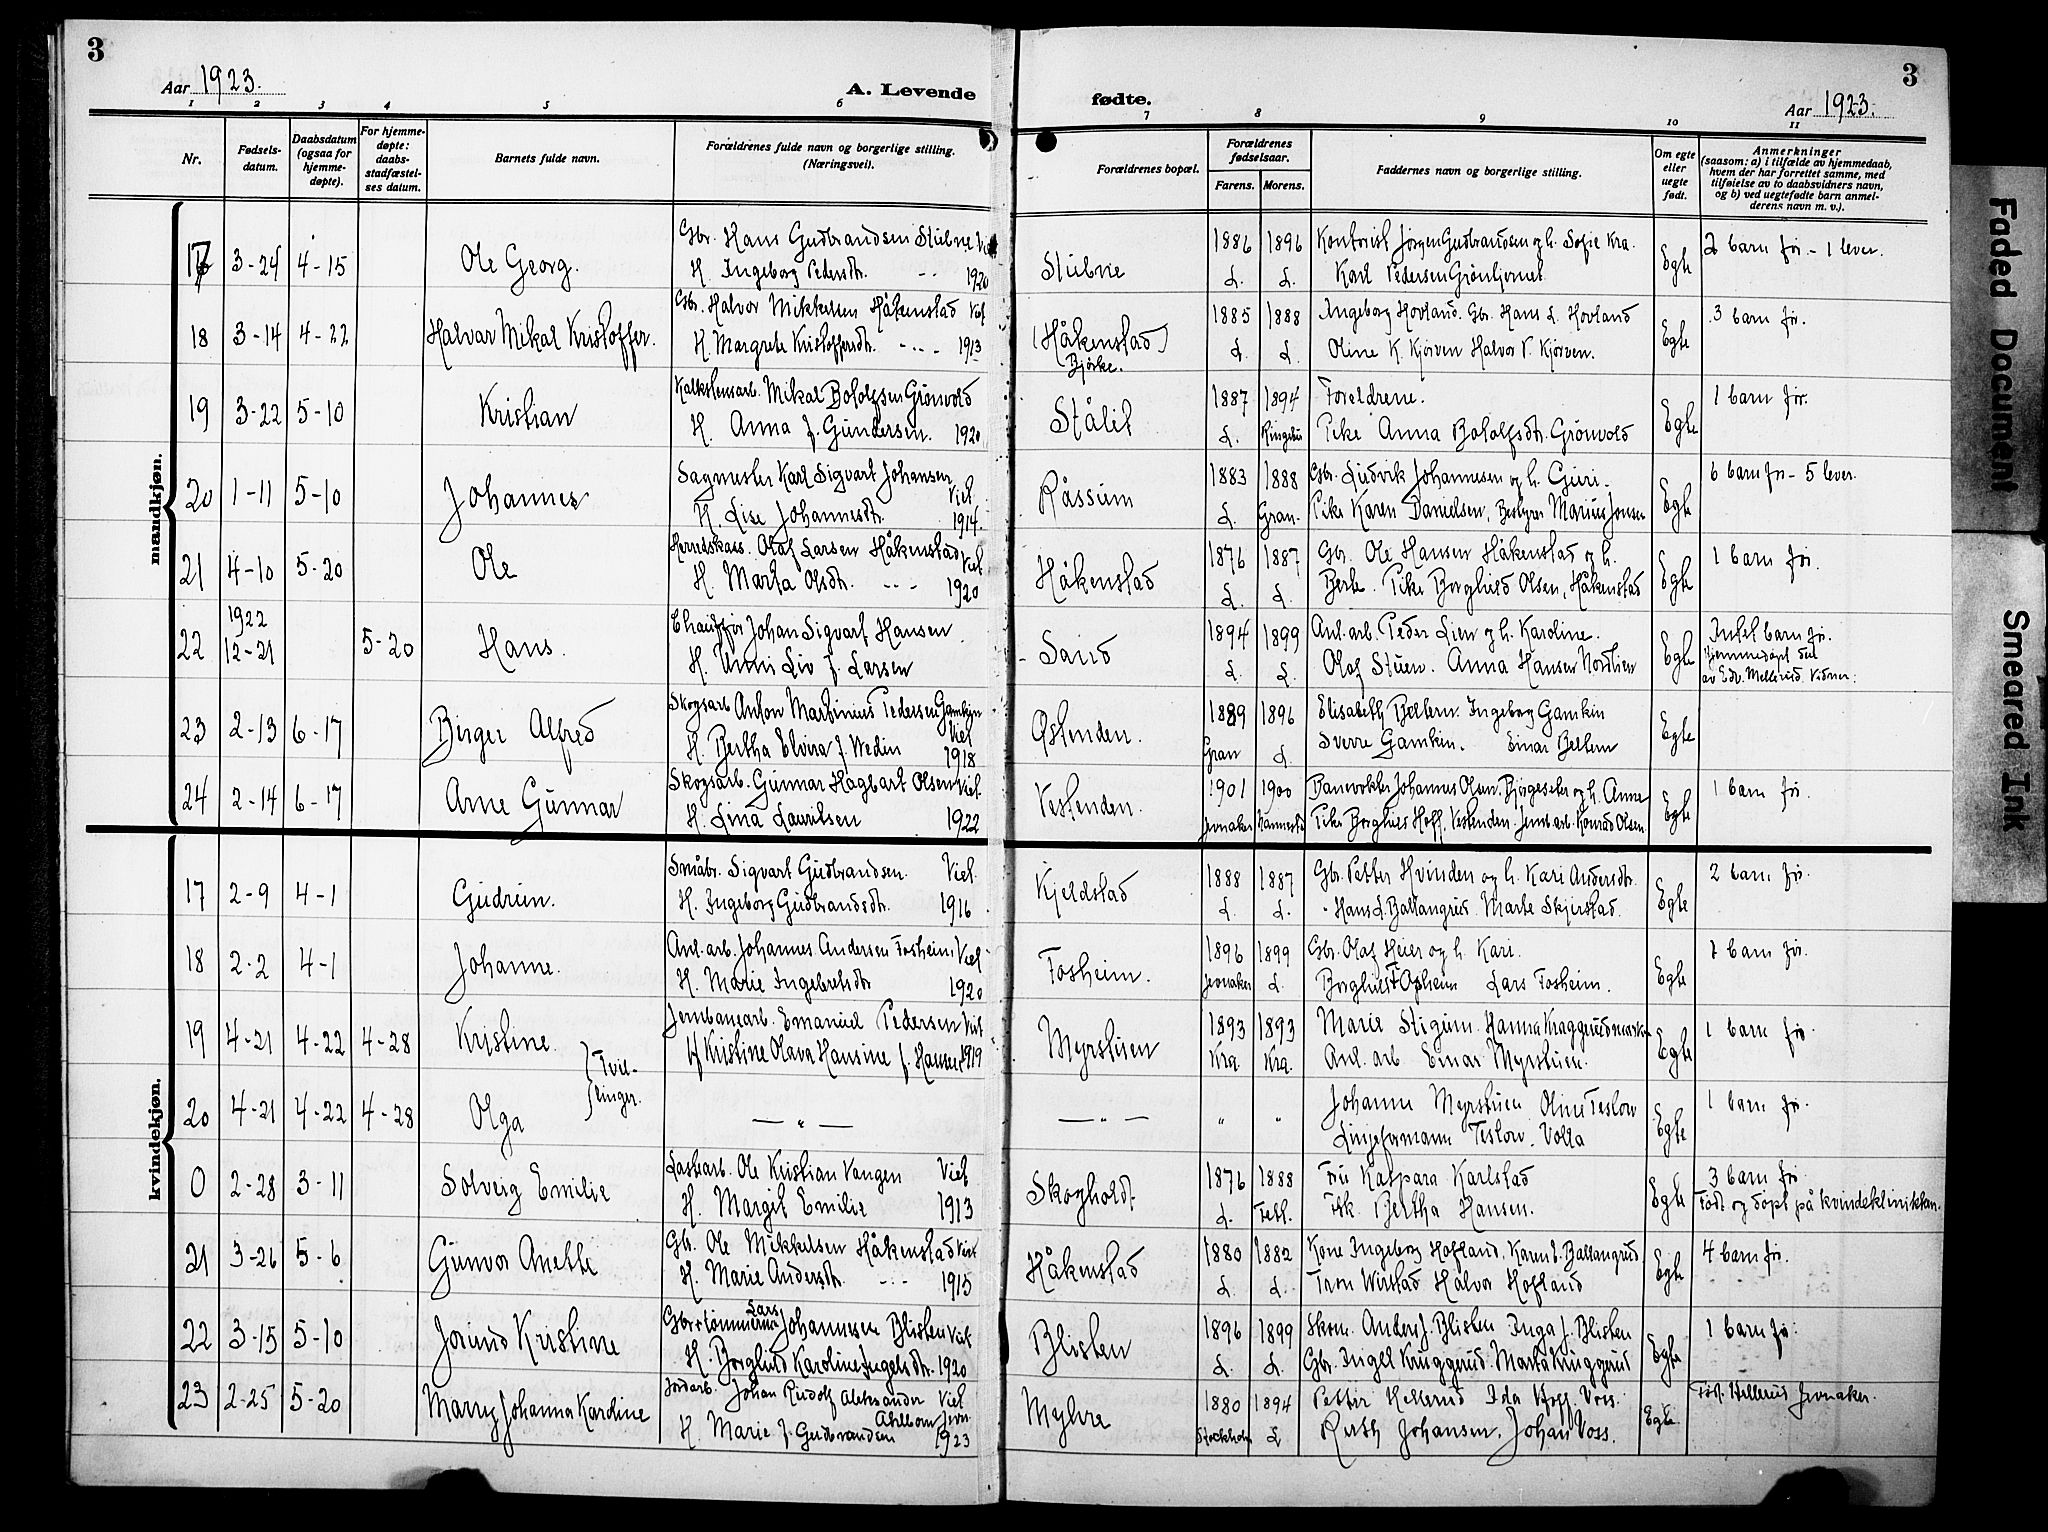 3
Aar 1923.
A. Levende
1 2 3 4 5 6
Nr.
Fødsels-
datum.
Daabsdatum
(ogsaa for
hjemme-
døpte).
For hjemme-
døpte:
daabs-
stadfæstel-
ses datum.
Barnets fulde navn.
Forældrenes fulde navn og borgerlige stilling.
(Næringsvei).
3
fødte.
Aar 1923.
7 8 9 10 11
Forældrenes bopæl.
Forældrenes
fødselsaar.
Farens. Morens.
Faddernes navn og borgerlige stilling.
Om egte
eller
uegte
født.
Anmerkninger
(saasom: a) i tilfælde av hjemmedaab,
hvem der har forrettet samme, med
tilføielse av to daabsvidners navn,
og b) ved uegtefødte barn anmel-
derens navn m. v.).
mandkjøn.
17 3-24 4-15 Ole Georg. Gbr. Hans Gudbrandsen Stubne
H. Ingeborg Pedersdtr. 1920
Stubne 1886 1896 Kontorist Jørgen Gudbrandsen og h. Sofie Kra. Egte 2 barn før - 1 lever.
L. L. Karl Pedersen Grøntjernet
18 3-14 4-22 Halvar Mikal Kristoffer. Gbr. Halvor Mikkelsen Håkenstad Viet
H. Margrete Kristoffersdtr. 1913
(Håkenstad) 1885 1888 Ingeborg Hovland. Gbr. Hans L. Hovland Egte 3 barn før.
Bjørke. L. L. Oline K. Kjørven Halvor V. Kjørven.
19 3-22 5-10 Kristian Kalkstensarb. Mikal Bololfsen Grönvold
H. Anna f. Gundersen. 1920
Stålit 1887 1894 Foreldrene. Egte 1 barn før.
L. Ringebu Pike Anna Bololfsdtr. Grönvold
20 1-11 5-10 Johannes Sagmester Karl Sigvart Johansen Viet
H. Lise Johannesdtr. 1914.
Råssum 1883 1888 Gbr. Ludvik Johannesen og h. Guri. Egte 6 barn før - 5 lever.
L. Gran. Pike Karen Danielsen, Bestyrer Marius Jonsen
21 4-10 5-20 Ole Herredskass. Olaf Larsen Håkenstad Viet
H. Marta Olsdtr. 1920
Håkenstad 1876 1887 Gbr. Ole Hansen Håkenstad og h. Egte 1 barn før.
L. L. Berte. Pike Borghild Olsen, Håkenstad
22 1922 12-21 5-20 Hans. Chauffør Johan Sigvart Hansen
H. Unni Liv f. Larsen
Sand 1894 1899 Anl. arb. Peder Lien og h. Karoline. Egte Intet barn før.
L. L. Olaf Stuen. Anna Hansen Nordlien Hjemmedøpt
av Edv. Mellerud. Vidner:
23 2-13 6-17 Birger Alfred Skogsarb Anton Martinius Pedersen Gamkin Viet
H. Bertha Elvira f. Wedin 1918
Østenden. 1889 1896 Elisabeth Bellern. Ingeborg Gamkin Egte
Gran L. Sverre Gamkin. Einar Bellern
24 2-14 6-17 Arne Gunnar Skogsarb. Gunnar Hagbart Olsen Viet
H. Lina Lauritsen 1922
Vestenden. 1901 1900 Banevokter Johannes Olsen. Bjørgeseter og h. Anne Egte 1 barn før.
Jevnaker Nannestad Pike Borghild Hoff, Vestenden. Jernb.arb. Konrad Olsen.
kvindekjøn.
17 2-9 4-1 Gudrun. Småbr. Sigvart Gudbrandsen. Viet.
H. Ingeborg Gudbrandsdtr. 1916
Kjeldstad 1888 1887 Gbr. Petter Hvinden og h. Kari Andersdtr. Egte 2 barn før.
L. L. Hans L. Ballangrud. Marte Skjerstad.
18 2-2 4-1 Johanne. Anl. arb. Johannes Andersen Fosheim Viet
H. Marie Ingebretsdtr 1920
Fosheim. 1896 1899 Gbr. Olaf Heier og h. Kari. Egte 1 barn før.
Jevnaker L. Borghild Opheim Lars Fosheim.
19 4-21 4-22 4-28 Kristine. Jernbanearb. Emanuel Pedersen Viet
H Kristine Olava Hansine f. Hansen 1919
Tvil-
linger.
Myrstuen 1893 1893 Marie Stigum. Hanna Kraggerudmarken Egte 1 barn før
Kra. Kra. Anl. arb Einar Myrstuen.
20 4-21 4-22 4-28 Olga — " — — " — " " Johanne Myrstuen Oline Teslow Egte 1 barn før.
Linjeformann Teslow. Volla
0 2-28 3-11 Solveig Emilie Lastearb. Ole Kristian Vangen Viet
H. Margit Emilie 1913
Skogholdt. 1876 1888 Fru Kaspara Karlstad Egte 3 barn før
L. Fetl. Frk. Bertha Hansen. Født og døpt på kvindeklinikken.
21 3-26 5-6 Gunvor Anette Gbr. Ole Mikkelsen Håkenstad Viet
H. Marie Andersdtr. 1915
Håkenstad 1880 1882 Kone Ingeborg Hofland. Karen L. Ballangrud. Egte 4 barn før.
L. L. Tron Wirstad Halvor Hofland
22 3-15 5-10 Jorund Kristine Gbr. & tømmerm. Lars Johannesen Blisten Viet
H. Borghild Karoline Ingelsdtr. 1920
Blisten 1896 1899 Skom. Anders J. Blisten Inga J. Blisten Egte 1 barn før.
L. L. Gbr. Ingell Kruggerud. Marta Kruggerud
23 2-25 5-20 Marry Johanna Karoline Jordarb. Johan Rudolf Aleksander Viet
Ahlbom Jevn.
H. Marie f. Gudbrandsen 1923
Mylvre 1880 1894 Petter Hellerud Ida Hoff. Voss. Egte. Fød. Hellerud Jevnaker.
Stockholm L Ruth Johansen. Johan Voss.
Faded Document
Smeared Ink